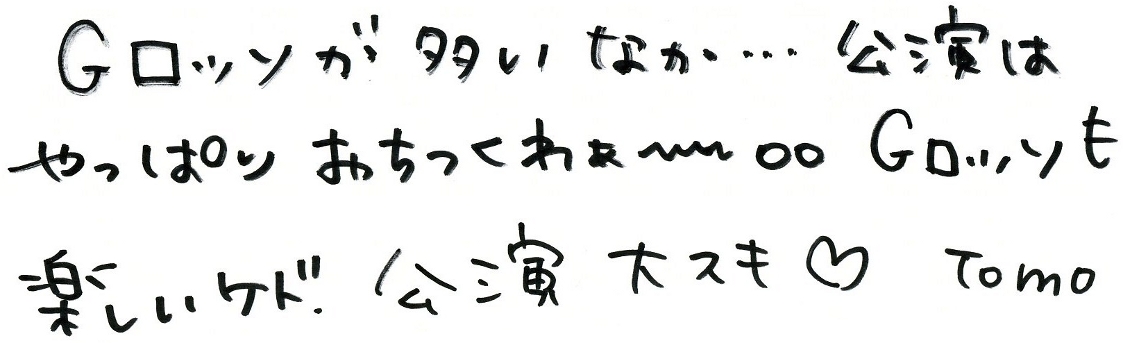 Gロッソが多いなか…公演は
やっぱりおちつくわぁ〜〜。。Gロッソも
楽しいケド。公演大スキ♡ Tomo